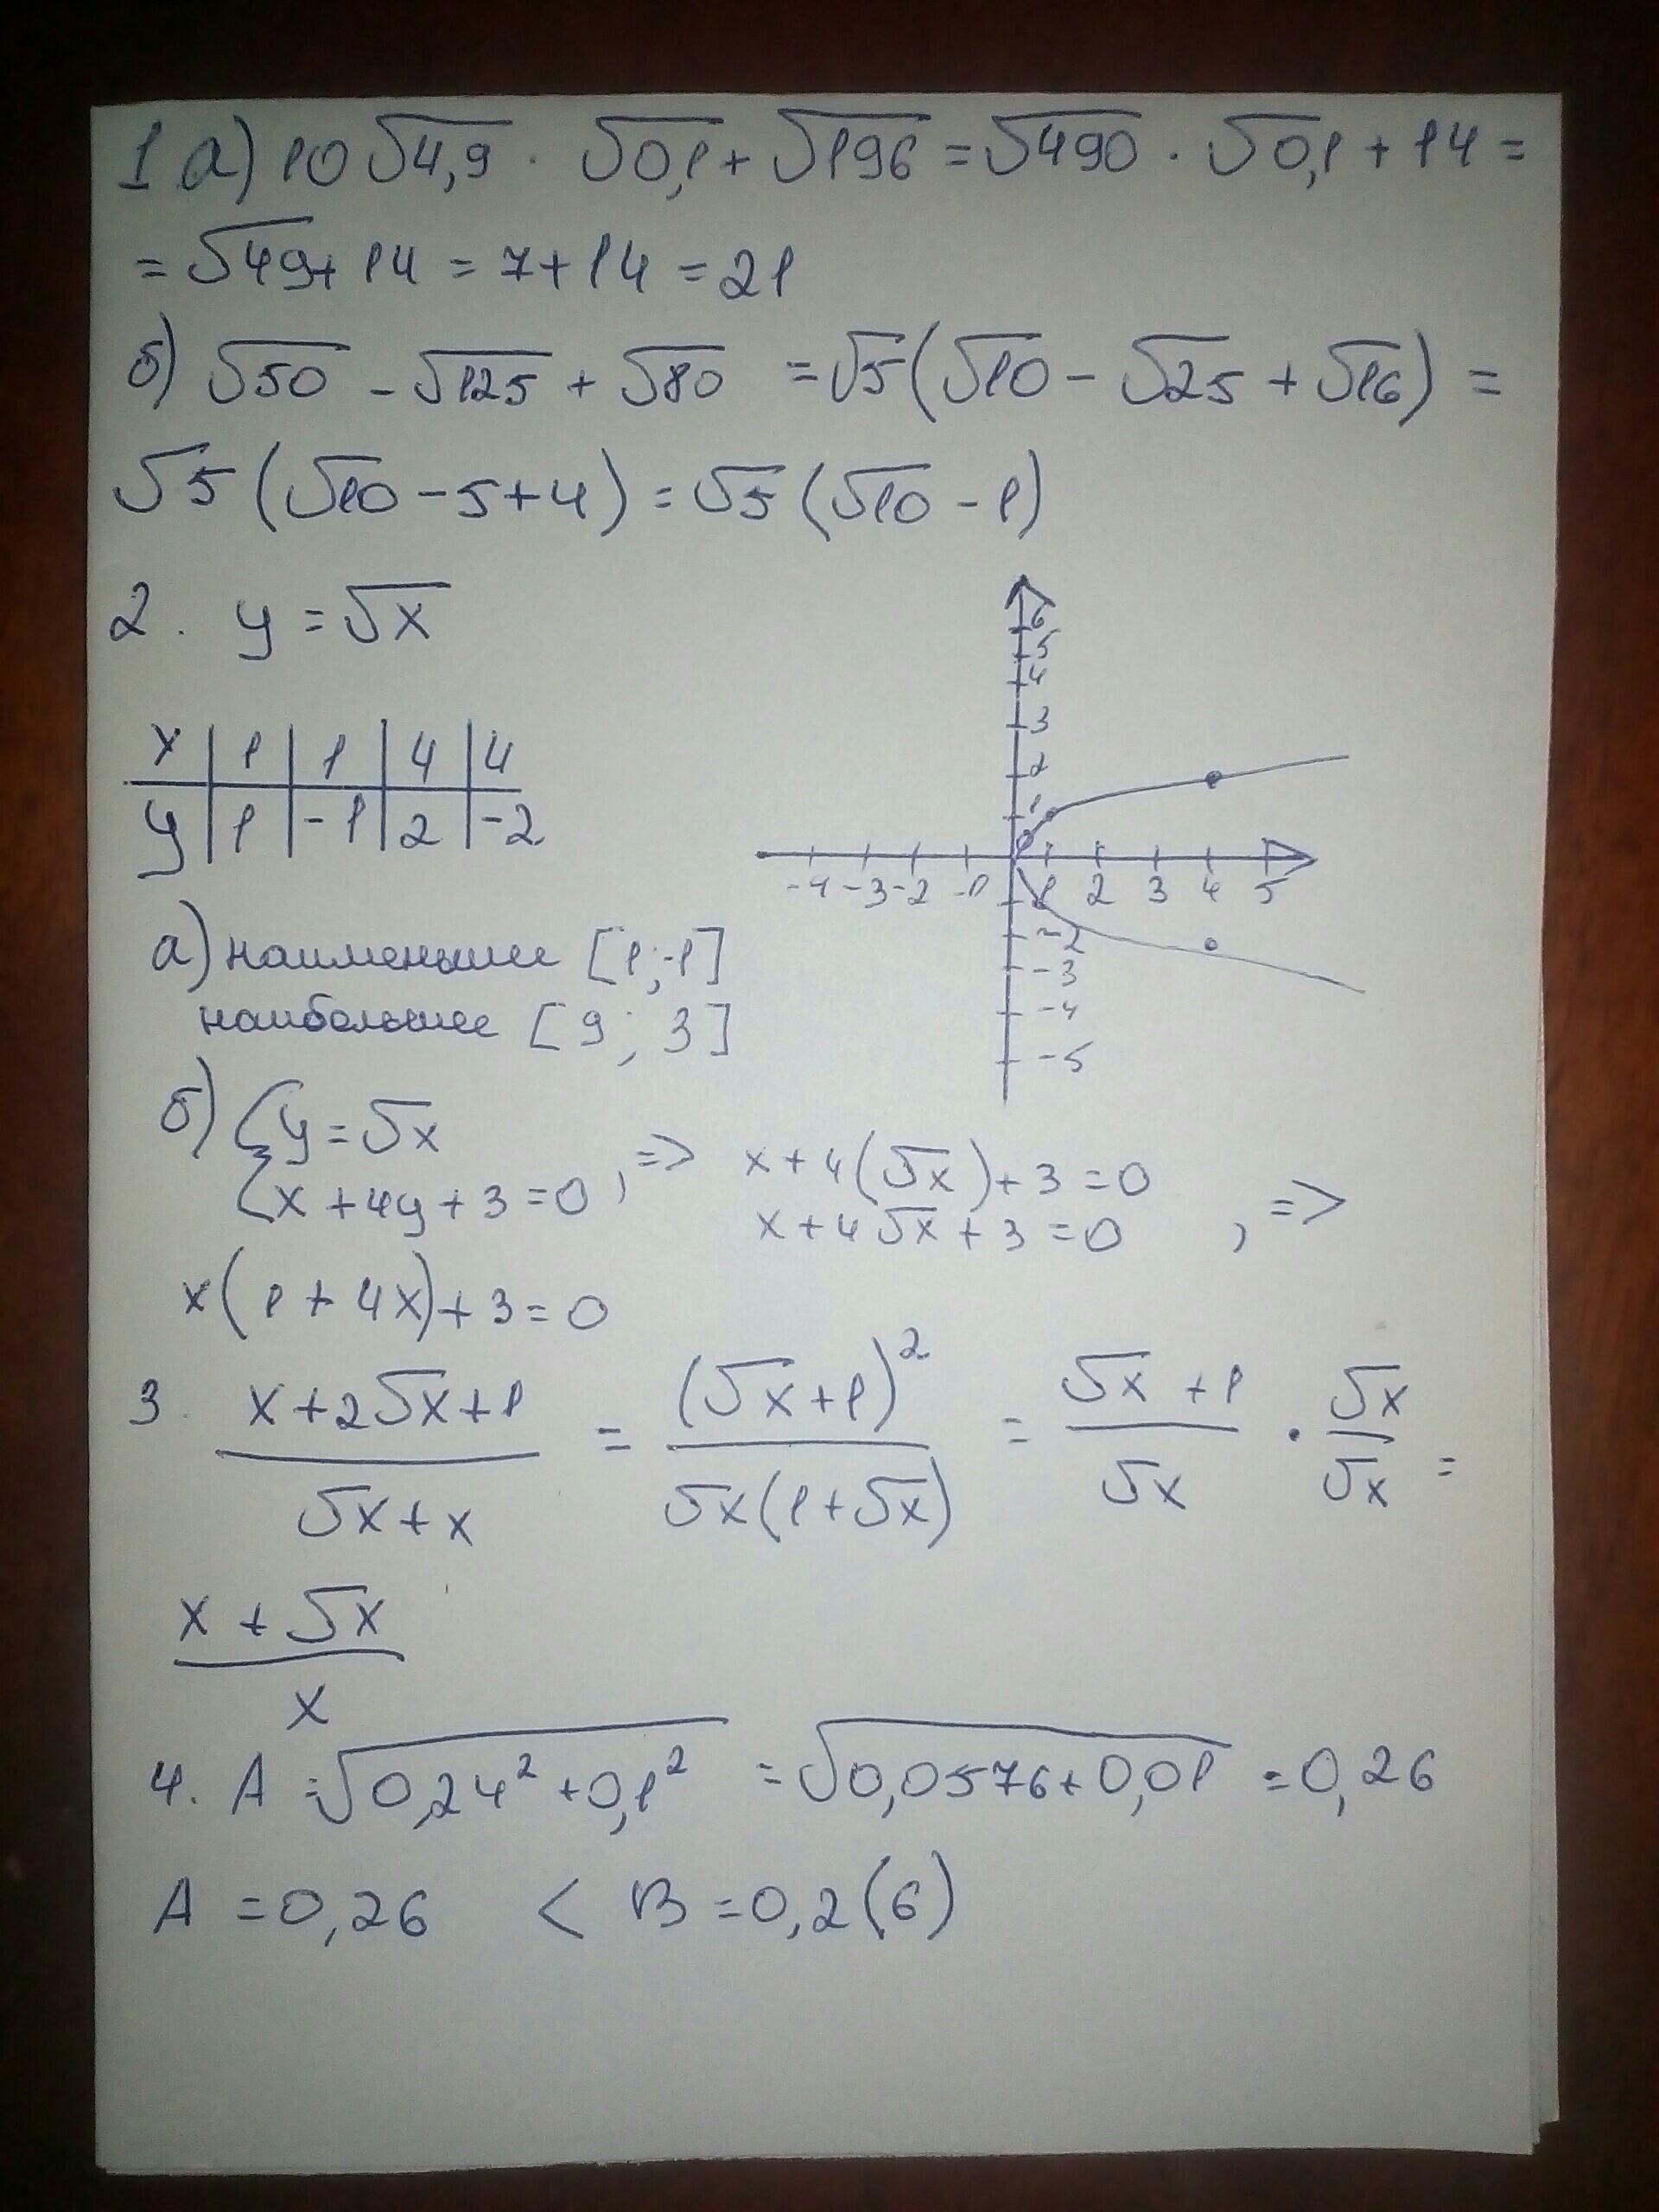 1 а) 10√4,9 · √0,1 + √196 = √490 · √0,1 + 14 =
= √49 + 14 = 7 + 14 = 21
б) √50 - √125 + √80 = √5(√10 - √25 + √16) =
√5(√10 - 5 + 4) = √5(√10 - 1)
2. y = √x
x | 1 | 1 | 4 | 4
y | 1 | -1 | 2 | -2
6
5
4
3
2
1
-4 -3 -2 -1 1 2 3 4 5
-2
-3
-4
-5
а) наименьшее [1; -1]
наибольшее [9; 3]
б) { y = √x
{ x + 4y + 3 = 0, => x + 4(√x) + 3 = 0
x + 4√x + 3 = 0 , =>
x(1 + 4x) + 3 = 0
3. (x+2√x+1)/(√x+x) = (√x+1)²/(√x(1+√x)) = (√x+1)/√x · √x/√x =
(x + √x)/x
4. A = √(0,24² + 0,1²) = √(0,0576 + 0,01) = 0,26
A = 0,26 < B = 0,2(6)